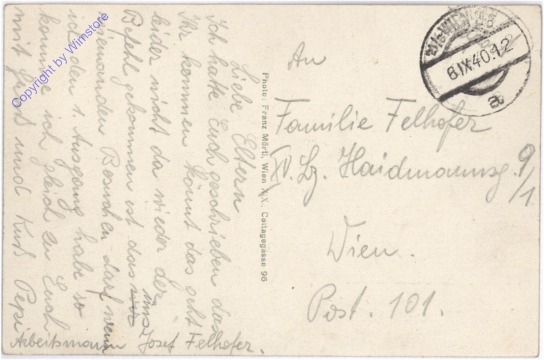 Liebe Eltern
Ich hatte Euch geschrieben das
Ihr kommen könnt das geht
leider nicht da wieder der
Befehl gekommen ist das
niemanden Besuchen darf wenn
ich den 1. Ausgang habe so
komme ich gleich zu Euch
mit Gruß und Kuß Pepi
Arbeitsmann Josef Felhofer.
Photo: Franz Mörtl, Wien XIX. Cottagegasse 96
6.IX.40.12
a
An
Familie Felhofer
XV. Lg. Haidmannsg. 9/1
Wien.
Post. 101.
Copyright by Wimstore